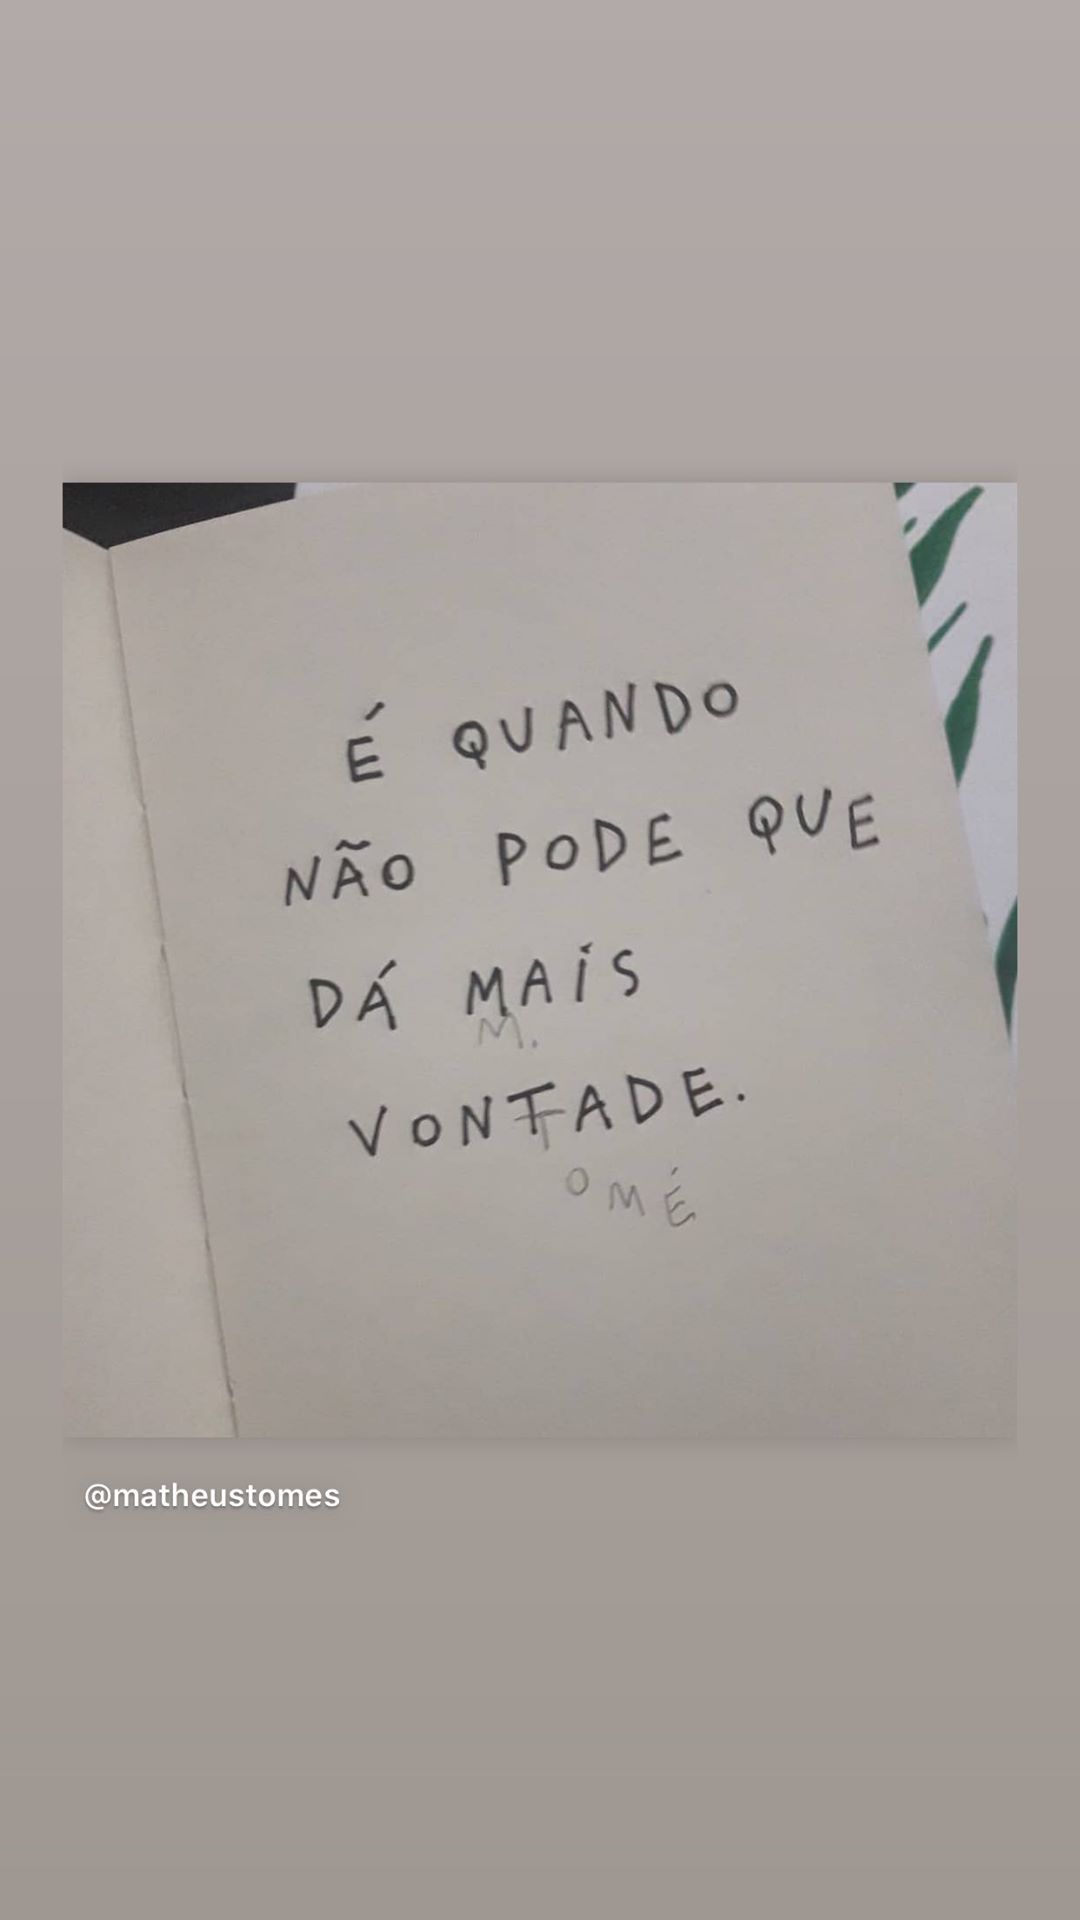 É QUANDO
NÃO PODE QUE
DÁ MAIS
M.
VONTADE.
TOMÉ
@matheustomes